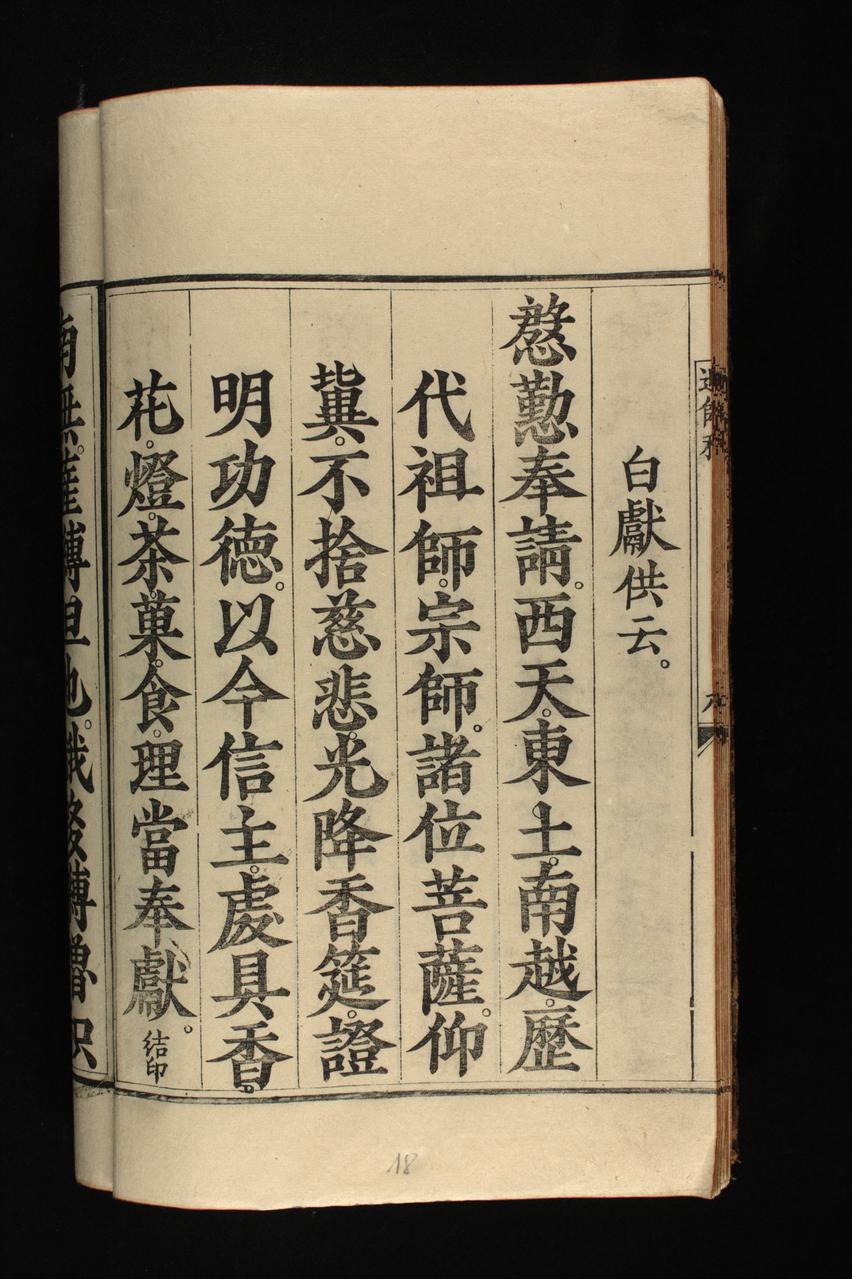 白獻供云。
慇懃奉請。西天。東土。南越。歷
代祖師。宗師。諸位菩薩。仰
冀。不捨慈悲。光降香筵。證
明功德。以今信主。處具香。
花。燈。茶。菓。食。理當奉獻。結印
南無。薩嚩旦他。哦多嚩嚕枳
18